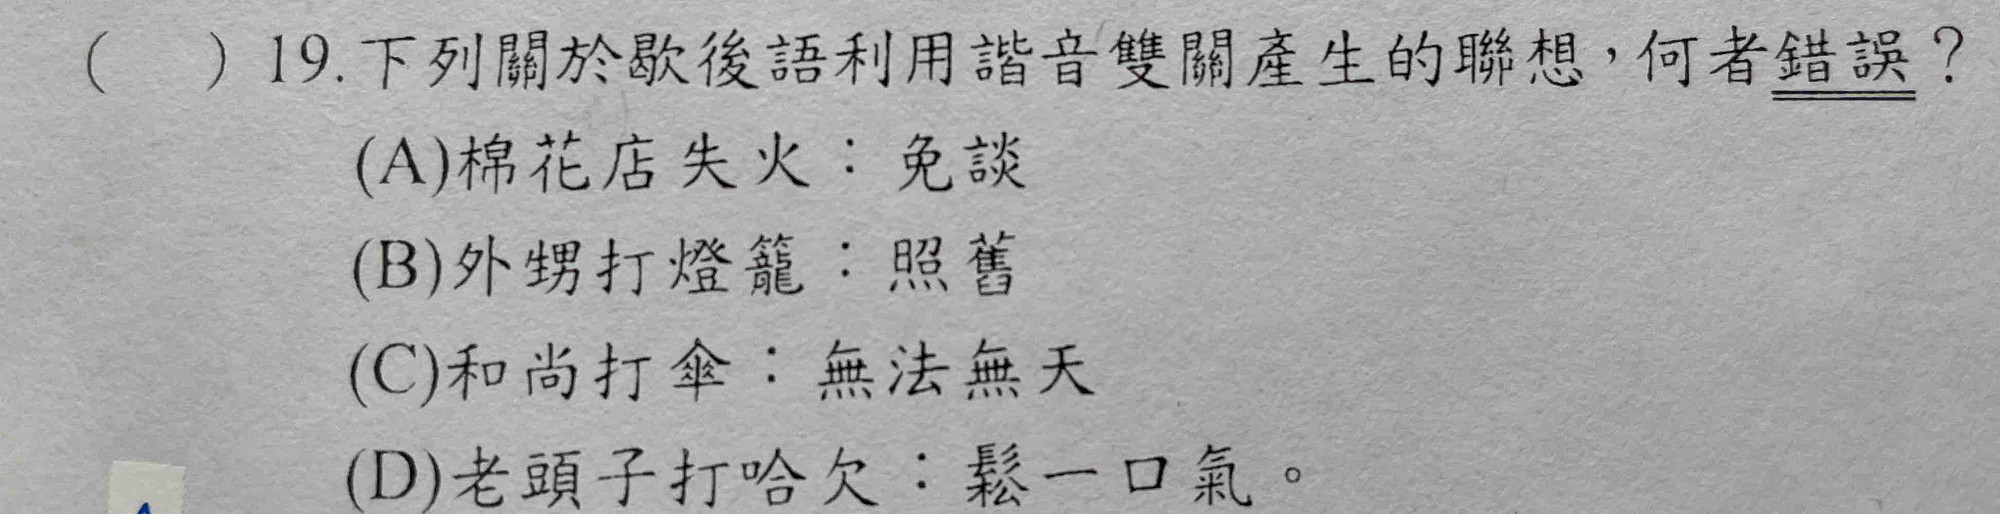 (　)19.下列關於歇後語利用諧音雙關產生的聯想，何者錯誤？
(A)棉花店失火：免談
(B)外甥打燈籠：照舊
(C)和尚打傘：無法無天
(D)老頭子打哈欠：鬆一口氣。